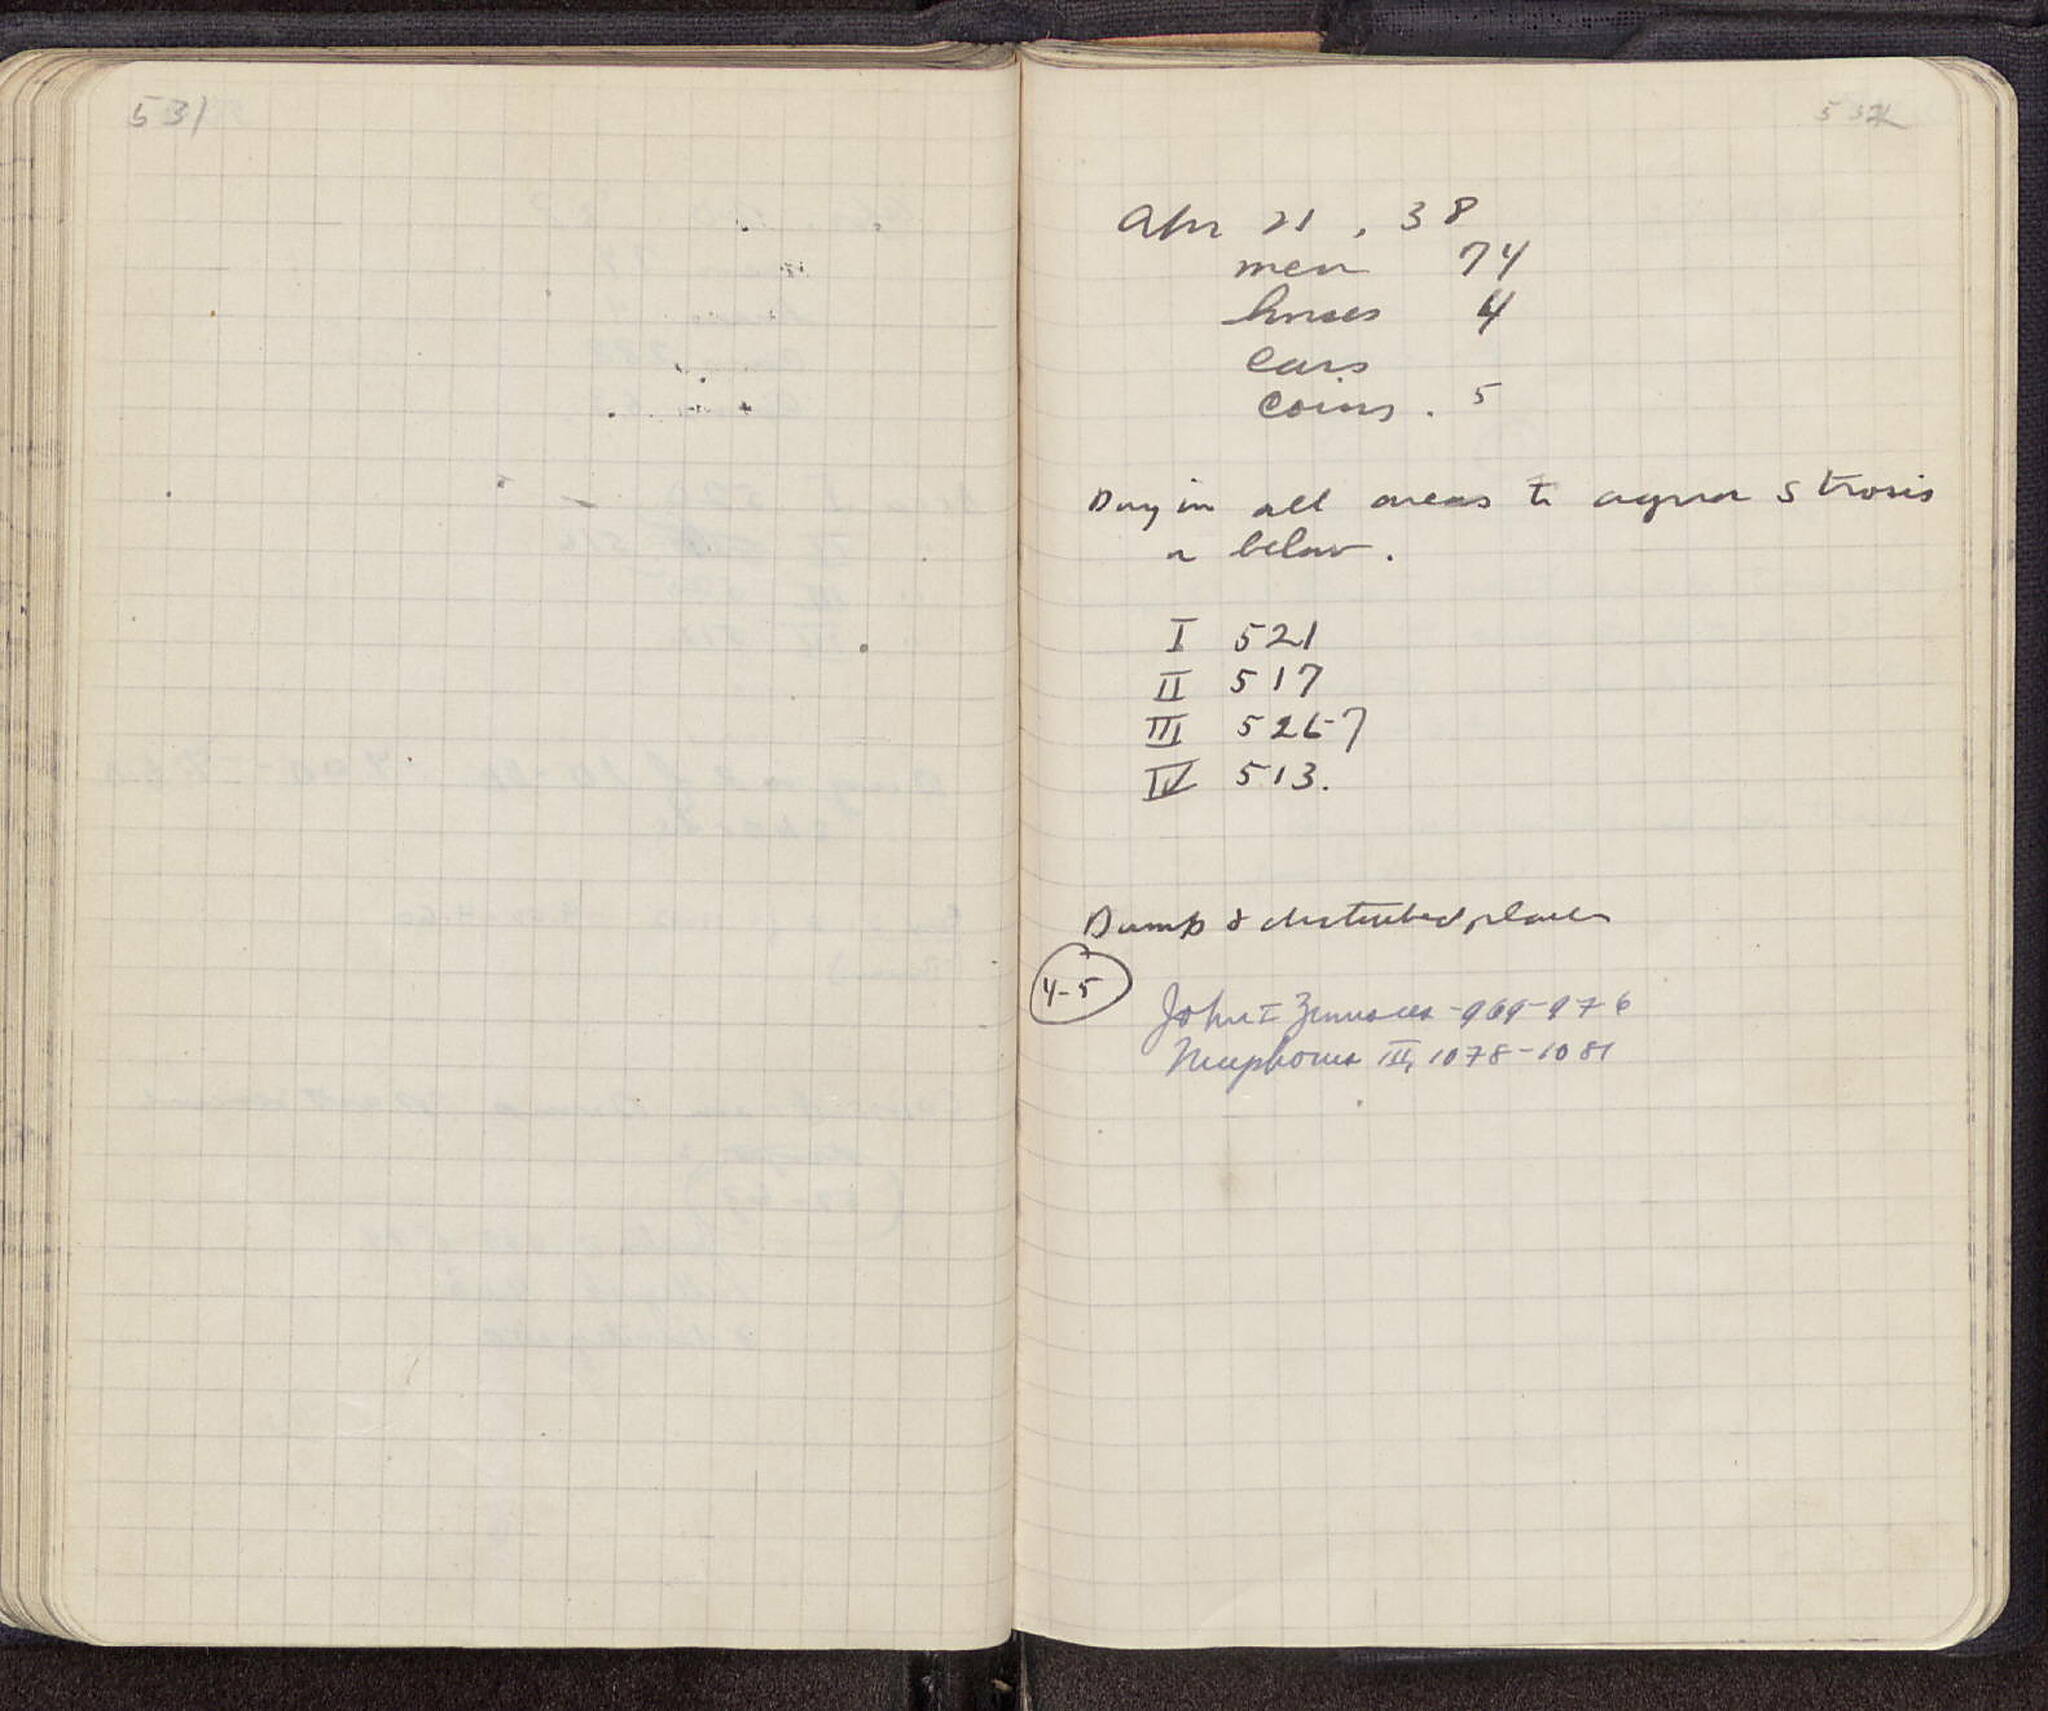 531
532
Apr 21, 38
men 74
horses 4
cars
coins. 5
Dug in all areas to agora Strosis
or below.
I 521
II 517
III 526-7
IV 513.
Dump & disturbed places
4-5
John I Zimisces - 969-976
Nicephorus III, 1078-1081